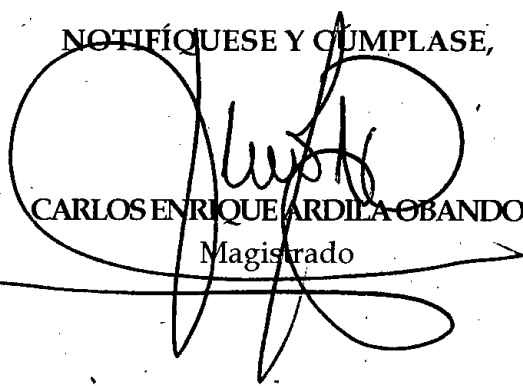 NOTIFÍQUESE Y CÚMPLASE,
CARLOS ENRIQUE ARDILA OBANDO
Magistrado